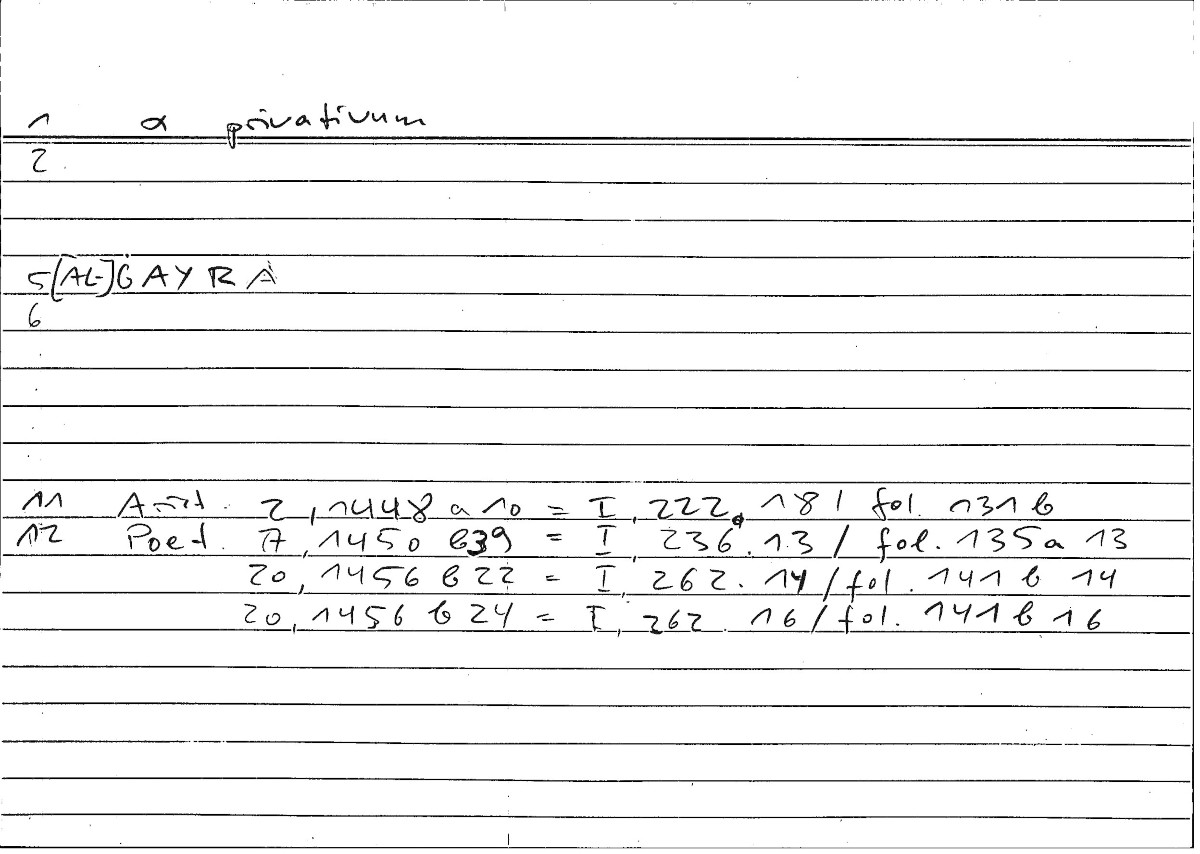 1 α privativum
2
5 [AL-]ĠAYR A
6
11 Arist. 2, 1448 a 10 = I, 222. 18 / fol. 131 b
12 Poet. 7, 1450 b 39 = I, 236. 13 / fol. 135 a 13
20, 1456 b 22 = I, 262. 14 / fol. 141 b 14
20, 1456 b 24 = I, 262. 16 / fol. 141 b 16